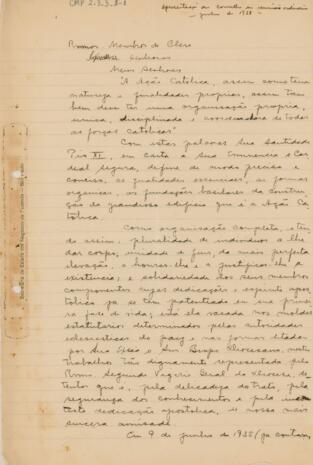 CMP 2.3.3.8-1
apresentado ao conselho
junho de 1938
Rvmos. Membros do Clero
Senhoras
Meus Senhores
"A Ação Católica, assim como tem
natureza e finalidades proprias, assim tam
bem deve ter uma organisação propria,
unica, disciplinada e coordenadora de todas
as forças catolicas"
Com estas palavras Sua Santidade
Pio XI, em carta a Sua Eminencia o Car
deal Segura, define de modo preciso e
conciso, as finalidades essenciais, as formas
organicas, os fundações basilares da constru
ção do grandioso edificio que é a Ação Ca
tolica.
Como organisação completa, e ten
do assim, pluralidade de individuos a lhe
dar corpo, unidade de fins, da mais perfeita
elevação, a honrar-lhe e a justificar-lhe a
existencia, e solidariedade dos seus membros
componentes cujas dedicações e espirito apos
tolico já se tem patenteado em sua primei
ra fase de vida; essa ela vasada nos moldes
estatutarios determinados pelas autoridades
eclesiasticas do paiz e nas formas ditadas
por Sua Excia o Snr Bispo Diocesano, nestes
trabalhos tão dignamente representado pelo
Rvmo. Segundo Vigario Geral da Diocese, de
tentor que é, pela delicadeza do trato, pela
segurança dos conhecimentos e pela
dedicação apostolica, de nossa mais
sincera amisade.
Em 9 de junho de 1935 (ja contam,